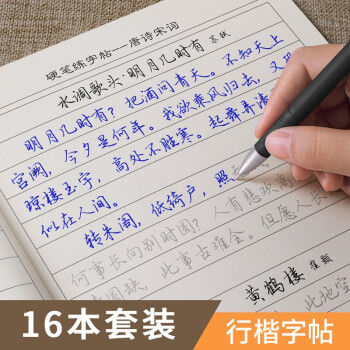 硬笔练字帖--唐诗宋词
水调歌头·明月几时有 苏轼
明月几时有？把酒问青天。不知天上
宫阙，今夕是何年。我欲乘风归去，又恐
琼楼玉宇，高处不胜寒。起舞弄清
似在人间。
转朱阁，低绮户，照
何事长向别时圆？人有悲欢离
圆缺，此事古难全。但愿人长
黄鹤楼 崔颢
此地空
16本套装
行楷字帖